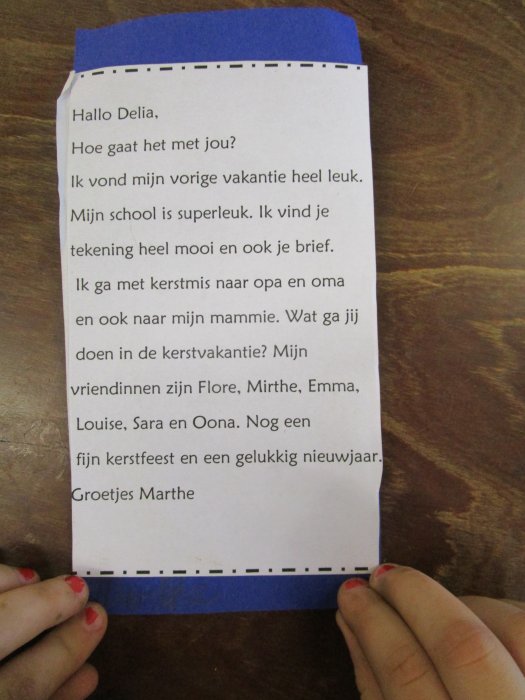 Hallo Delia,
Hoe gaat het met jou?
Ik vond mijn vorige vakantie heel leuk.
Mijn school is superleuk. Ik vind je
tekening heel mooi en ook je brief.
Ik ga met kerstmis naar opa en oma
en ook naar mijn mammie. Wat ga jij
doen in de kerstvakantie? Mijn
vriendinnen zijn Flore, Mirthe, Emma,
Louise, Sara en Oona. Nog een
fijn kerstfeest en een gelukkig nieuwjaar.
Groetjes Marthe